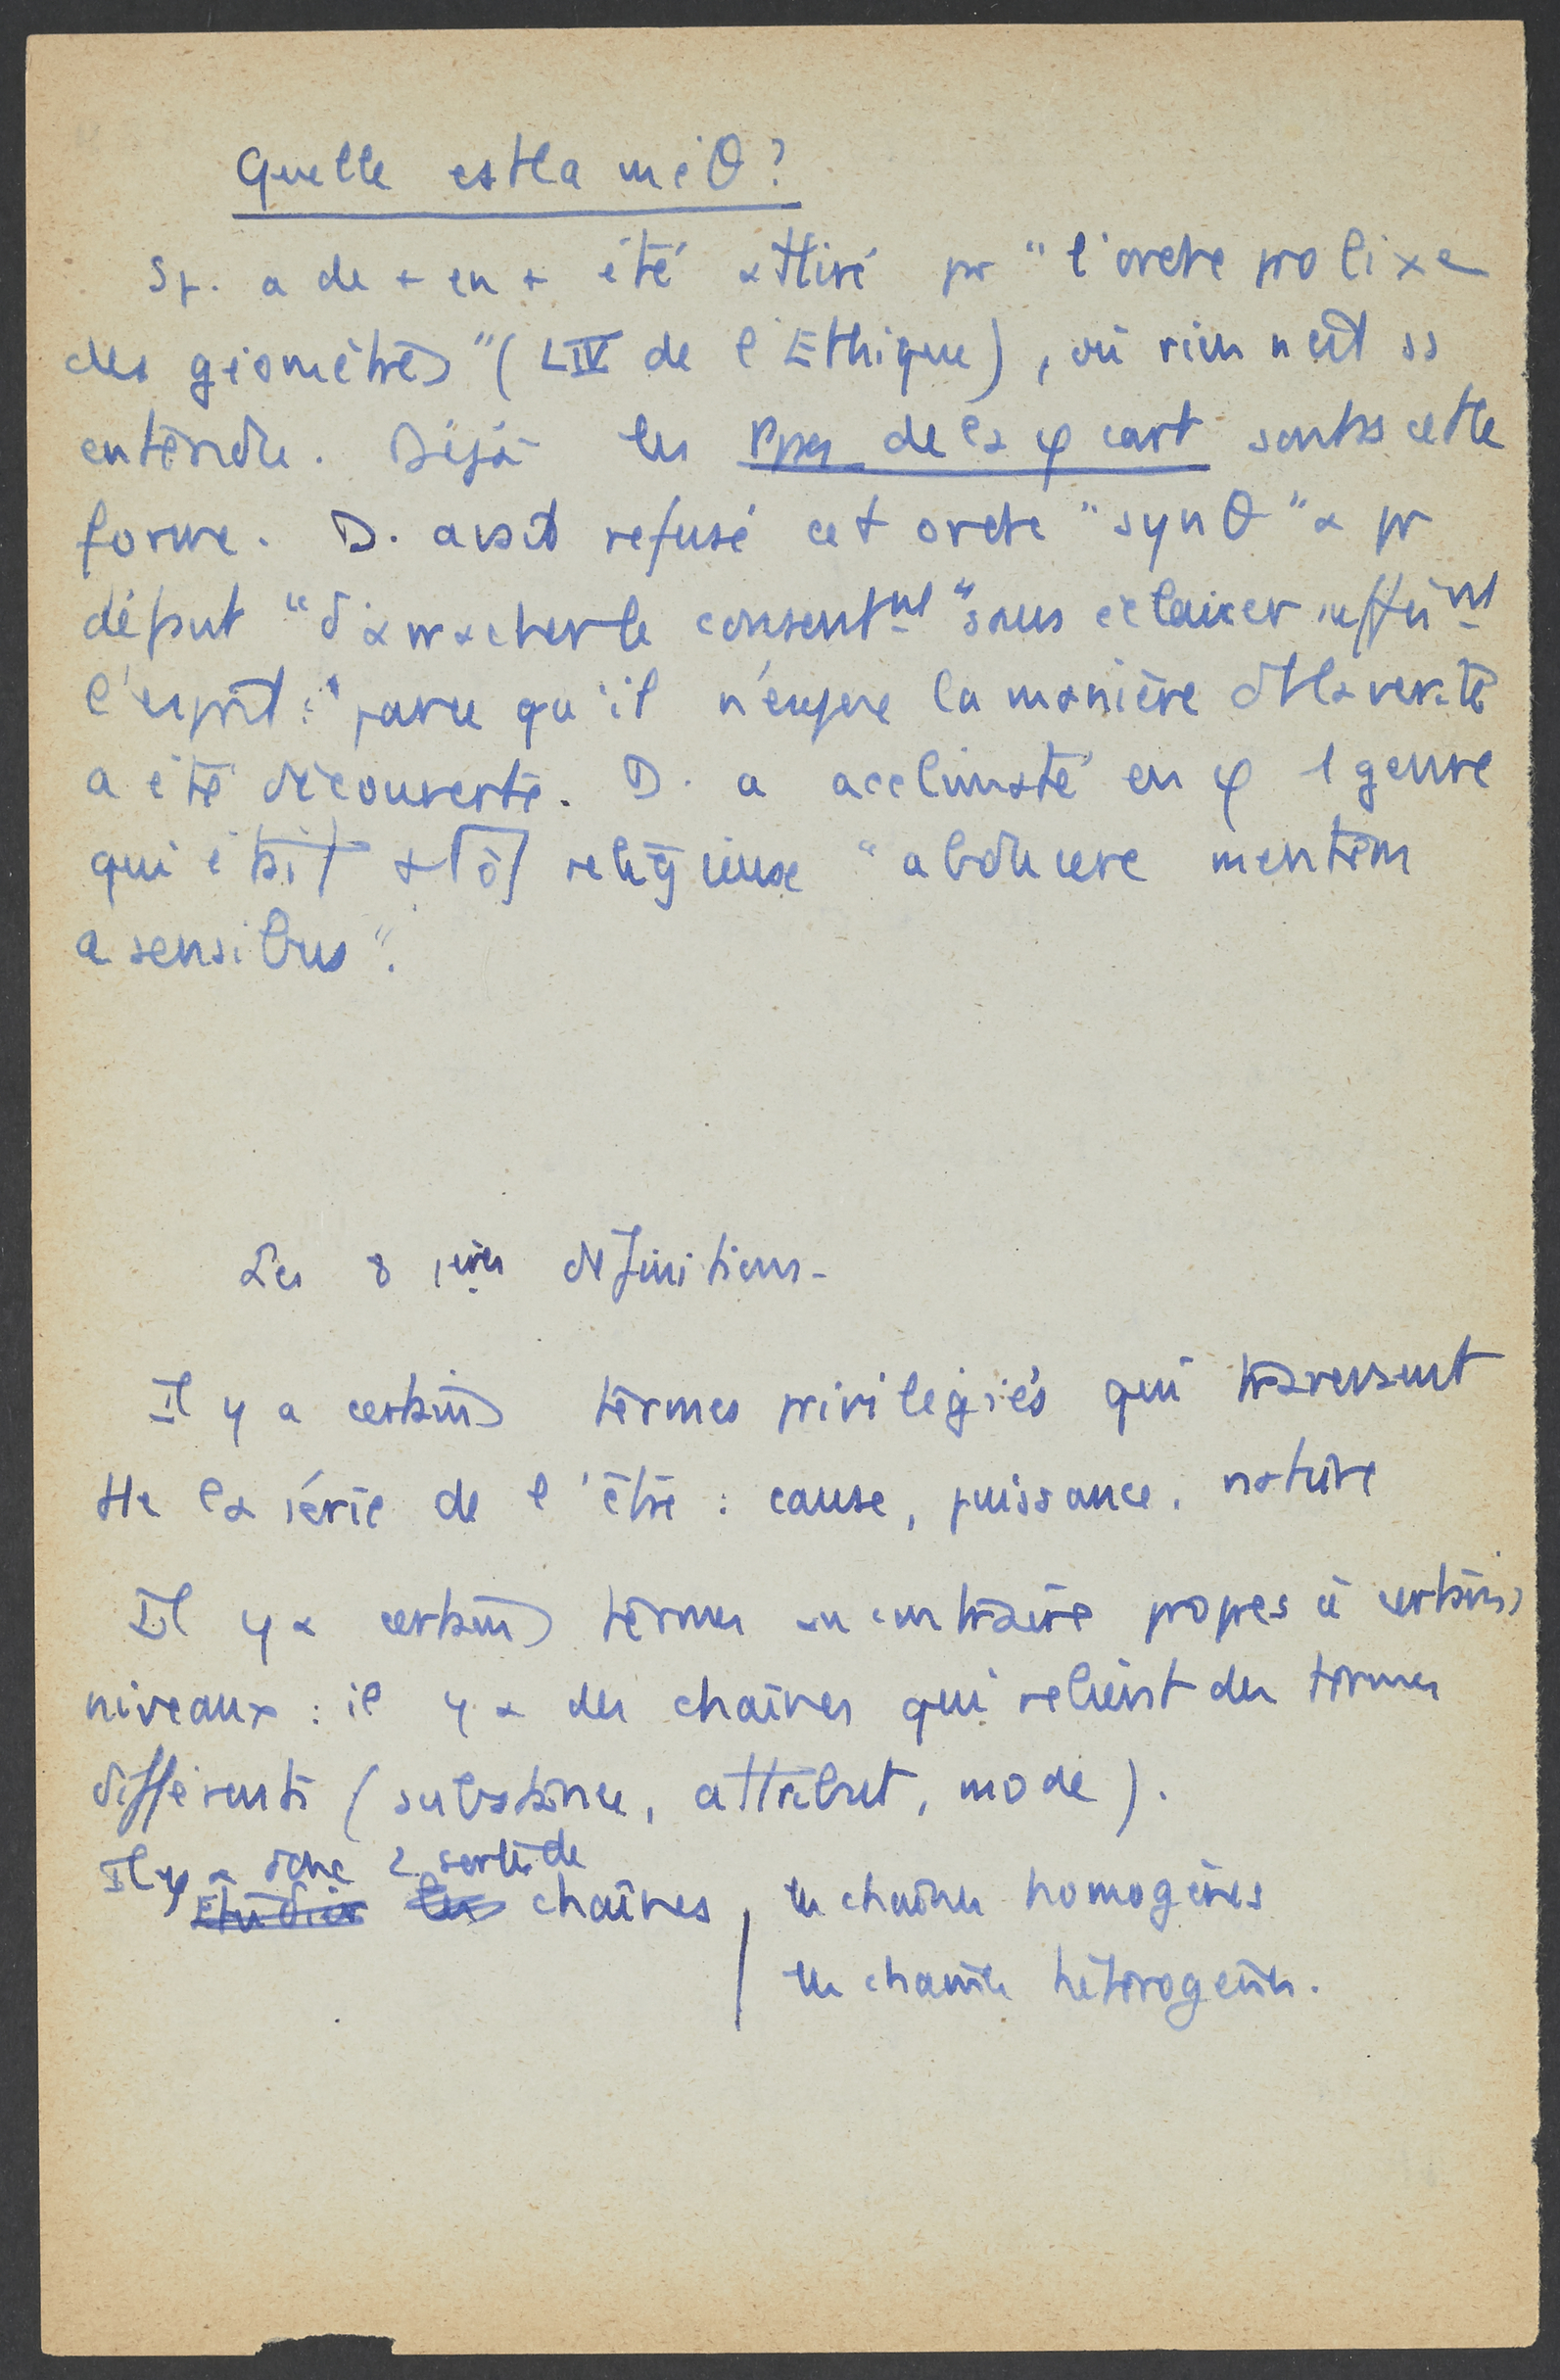 Quelle est la méθ ?
Sp. a de + en + été attiré pr "l'ordre prolixe
des géomètres" (L IV de l'Ethique), où rien n'est ss
entendu. Déjà les Ppes de la φ cart sont ss cette
forme. D. avait refusé cet ordre "synθ" a pr
défaut "d'arracher le consentnt" sans éclairer suffisnt
l'esprit : parce qu'il n'enseigne la manière dt la vérité
a été découverte. D. a acclimaté en φ 1 genre
qui était religieuse "abducere mentem
a sensibus".
Les 8 1ères définitions.
Il y a certains termes privilégiés qui traversent
tte la série de l'être : cause, puissance, nature
Il y a certains termes au contraire propres à certains
niveaux : il y a des chaînes qui relient des termes
différents (substance, attribut, mode).
Il y a donc 2 sortes de
Etudier les chaînes, les chaînes homogènes
les chaînes hétérogènes.